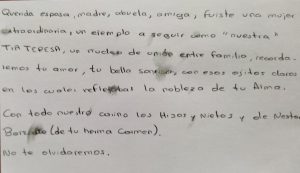 Querida esposa, madre, abuela, amiga, fuiste una mujer
extraordinaria, un ejemplo a seguir como "nuestra"
TIA TERESA, un nucleo de unión entre familia, recorda-
remos tu amor, tu bella sonrisa, con esos ojitos claros
en los cuales reflejabas la nobleza de tu Alma.
Con todo nuestro cariño los Hijos y Nietos y de Nestor
(de tu herma Carmen).
No te olvidaremos.